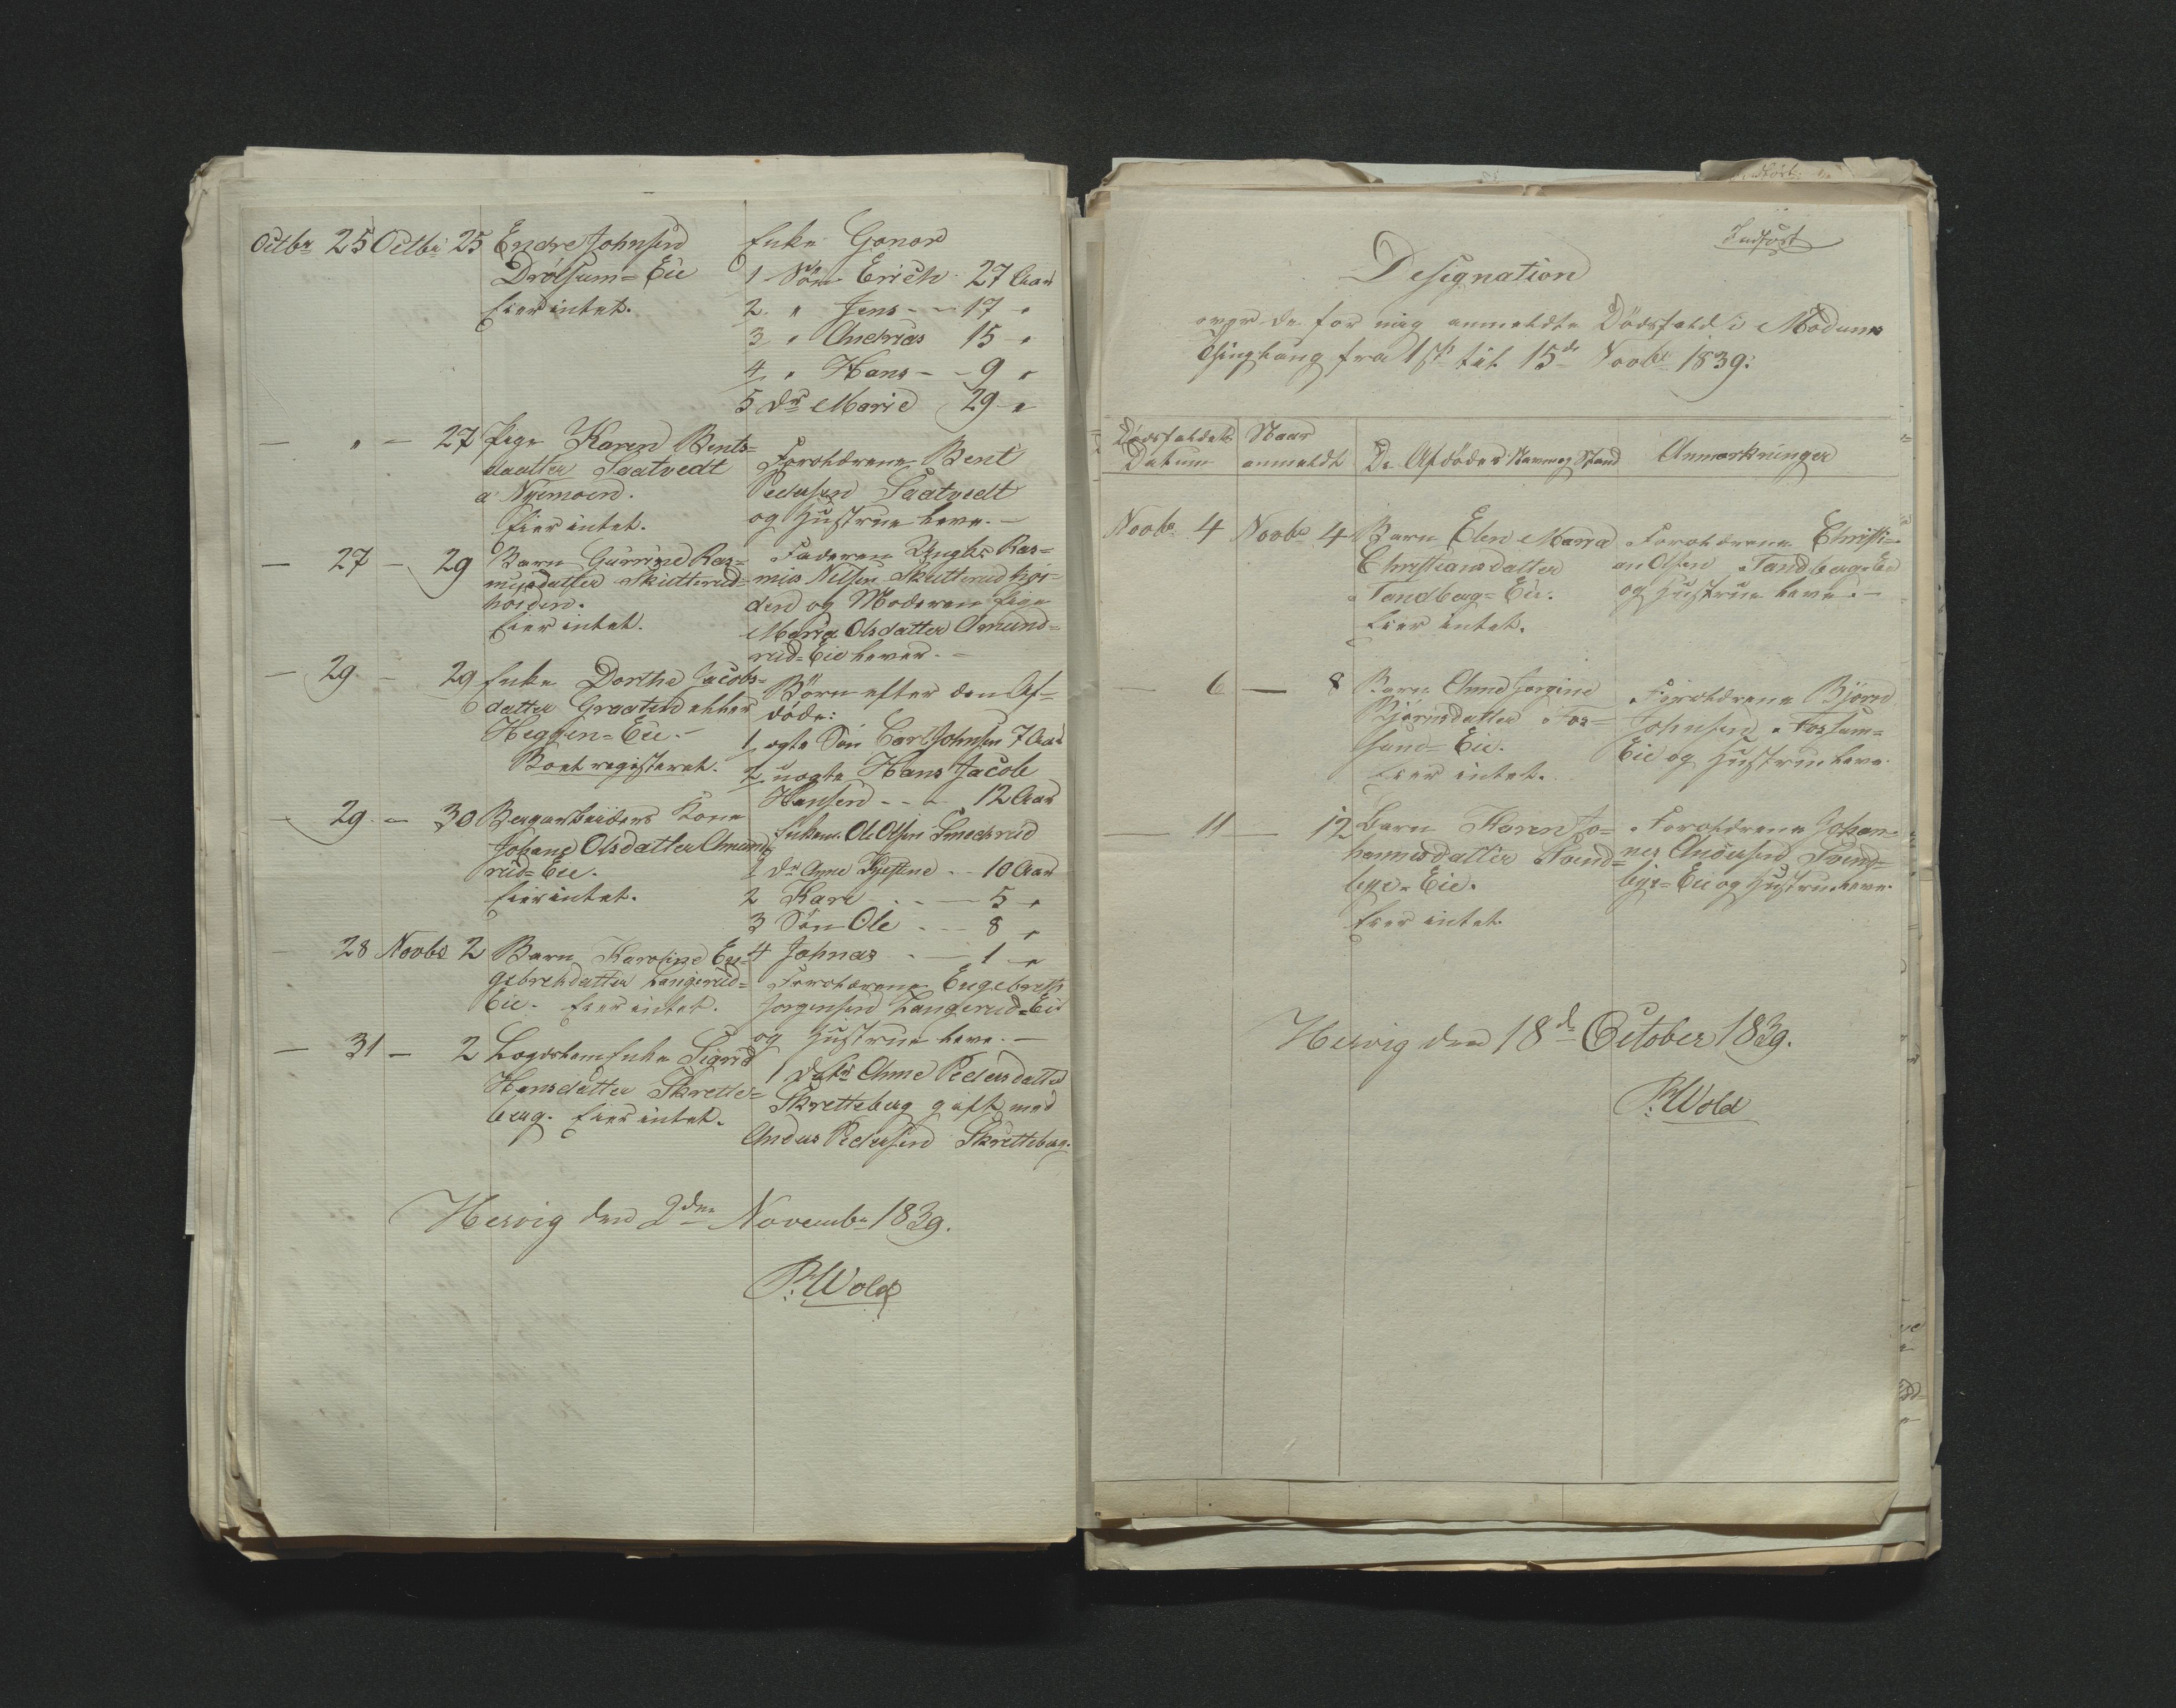 Octbr 25 Octbr 25 Endre Johnsen
Drolsum= Eie
Eier intet.
Enke Gonor
1 Søn Erich 27 Aar
2 " Jens - - 17 "
3 " Andreas 15 "
4 " Hans - - 9 "
5 Dr Marie 29 "
— " — 27 Pige Karen Bents=
daatter Saatvedt
a Nyemoen.
Eier intet.
Forældrene Bent
Pedersen Saatvedt
og Hustrue leve. —
— 27 — 29 Barn Gurrine Ras=
musdatter Skutterud=
hoiden.
Eier intet.
Faderen Ungkr Ras=
mus Nilsen Skutterud hoi=
den og Moderen Pige
Maria Olsdatter Amund=
rud= Eie lever. —
— 29 — 29 Enke Dorthe Jacobs=
datter Graaten eller
Heggen= Eie. —
Boet registeret.
Börn efter den Af=
døde:
1 ægte Søn Carl Johnsen 7 Aar
2 uægte Hans Jacob
Hansen - - - 12 Aar
— 29 — 30 Bergarbeiders Kone
Johane Olsdatter Amund
rud= Eie.
Eier intet.
Enkem. Ole Olsen Smedsrud
1 Dr Anne Kjestine - - 10 Aar
2 Kari - - — 5 "
3 Søn Ole - - 8 "
4 Johnas - — 1 "
— 28 Novbr 2 Barn Karoline En=
gebrehdatter Langerud=
Eie. Eier intet.
Forældrene Engebreth
Jorgensen Langerud= Eie
og Hustrue leve. —
— 31 — 2 Lægdslem Enke Sigrid
Hansdatter Skrette=
berg. Eier intet.
1 Datr Anne Pedersdatter
Skretteberg gift med
Anders Pedersen Skretteberg.
Hervig den 2den Novembr 1839.
P. Wold
Indført
Designation
over de for mig anmeldte Dödsfald i Modums
Thinglaug fra 1ste til 15de Novbr 1839:
Dödsfaldets Datum
Naar anmeldt
De Afdödes Navn og Stand
Anmærkninger
Novbr 4 Novbr 4 Barn Elen Maria
Christiansdatter
Tandberg= Eie.
Eier intet.
Forældrene Christi=
an Olsen Tandberg= Eie
og Hustrue leve. —
— 6 — 8 Barn Anne Jorgine
Bjørnsdatter Fos=
sund= Eie.
Eier intet.
Forældrene Bjørn
Johnsen Fossum=
Eie og Hustrue leve.
— 11 — 12 Barn Karen Jo=
hannesdatter Svend=
bye= Eie.
Eier intet.
Forældrene Johan=
nes Andersen Svend=
bye= Eie og Hustrue leve.
Hervig den 18de October 1839.
P. Wold